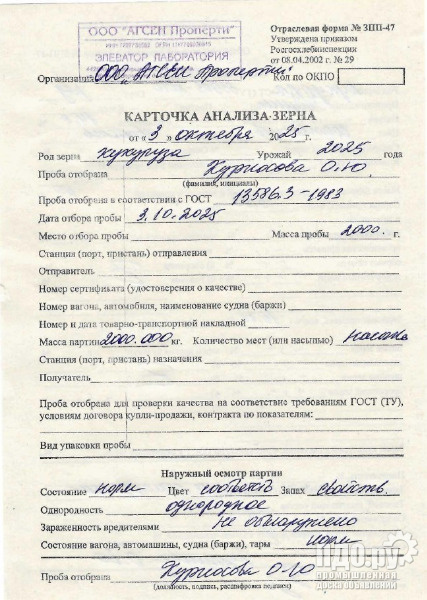 ООО "АГСЕН Проперти"
ЭЛЕВАТОР ЛАБОРАТОРИЯ
Отраслевая форма № ЗПП-47
Утверждена приказом
Росгосхлебинспекции
от 08.04.2002 г. № 29
Организация ООО "АГСЕН Проперти" Код по ОКПО
КАРТОЧКА АНАЛИЗА ЗЕРНА
от « 3 » октября 2025 г.
Род зерна кукуруза Урожай 2025 года
Проба отобрана О.Ю.
(фамилия, инициалы)
Проба отобрана в соответствии с ГОСТ 13586.3-1983
Дата отбора пробы 3.10.2025
Место отбора пробы Масса пробы 2000. г.
Станция (порт, пристань) отправления
Отправитель
Номер сертификата (удостоверения о качестве)
Номер вагона, автомобиля, наименование судна (баржи)
Номер и дата товарно-транспортной накладной
Масса партии 2000.000 кг. Количество мест (или насыпью)
Станция (порт, пристань) назначения
Получатель
Проба отобрана для проверки качества на соответствие требованиям ГОСТ (ТУ),
условиям договора купли-продажи, контракта по показателям:
Вид упаковки пробы
Наружный осмотр партии
Состояние норм Цвет Запах свойств.
Однородность однородное
Зараженность вредителями Не обнаружено
Состояние вагона, автомашины, судна (баржи), тары норм
Проба отобрана О.Ю
(должность, подпись, расшифровка подписи)
ПДО.ру
промышленная
доска объявлений